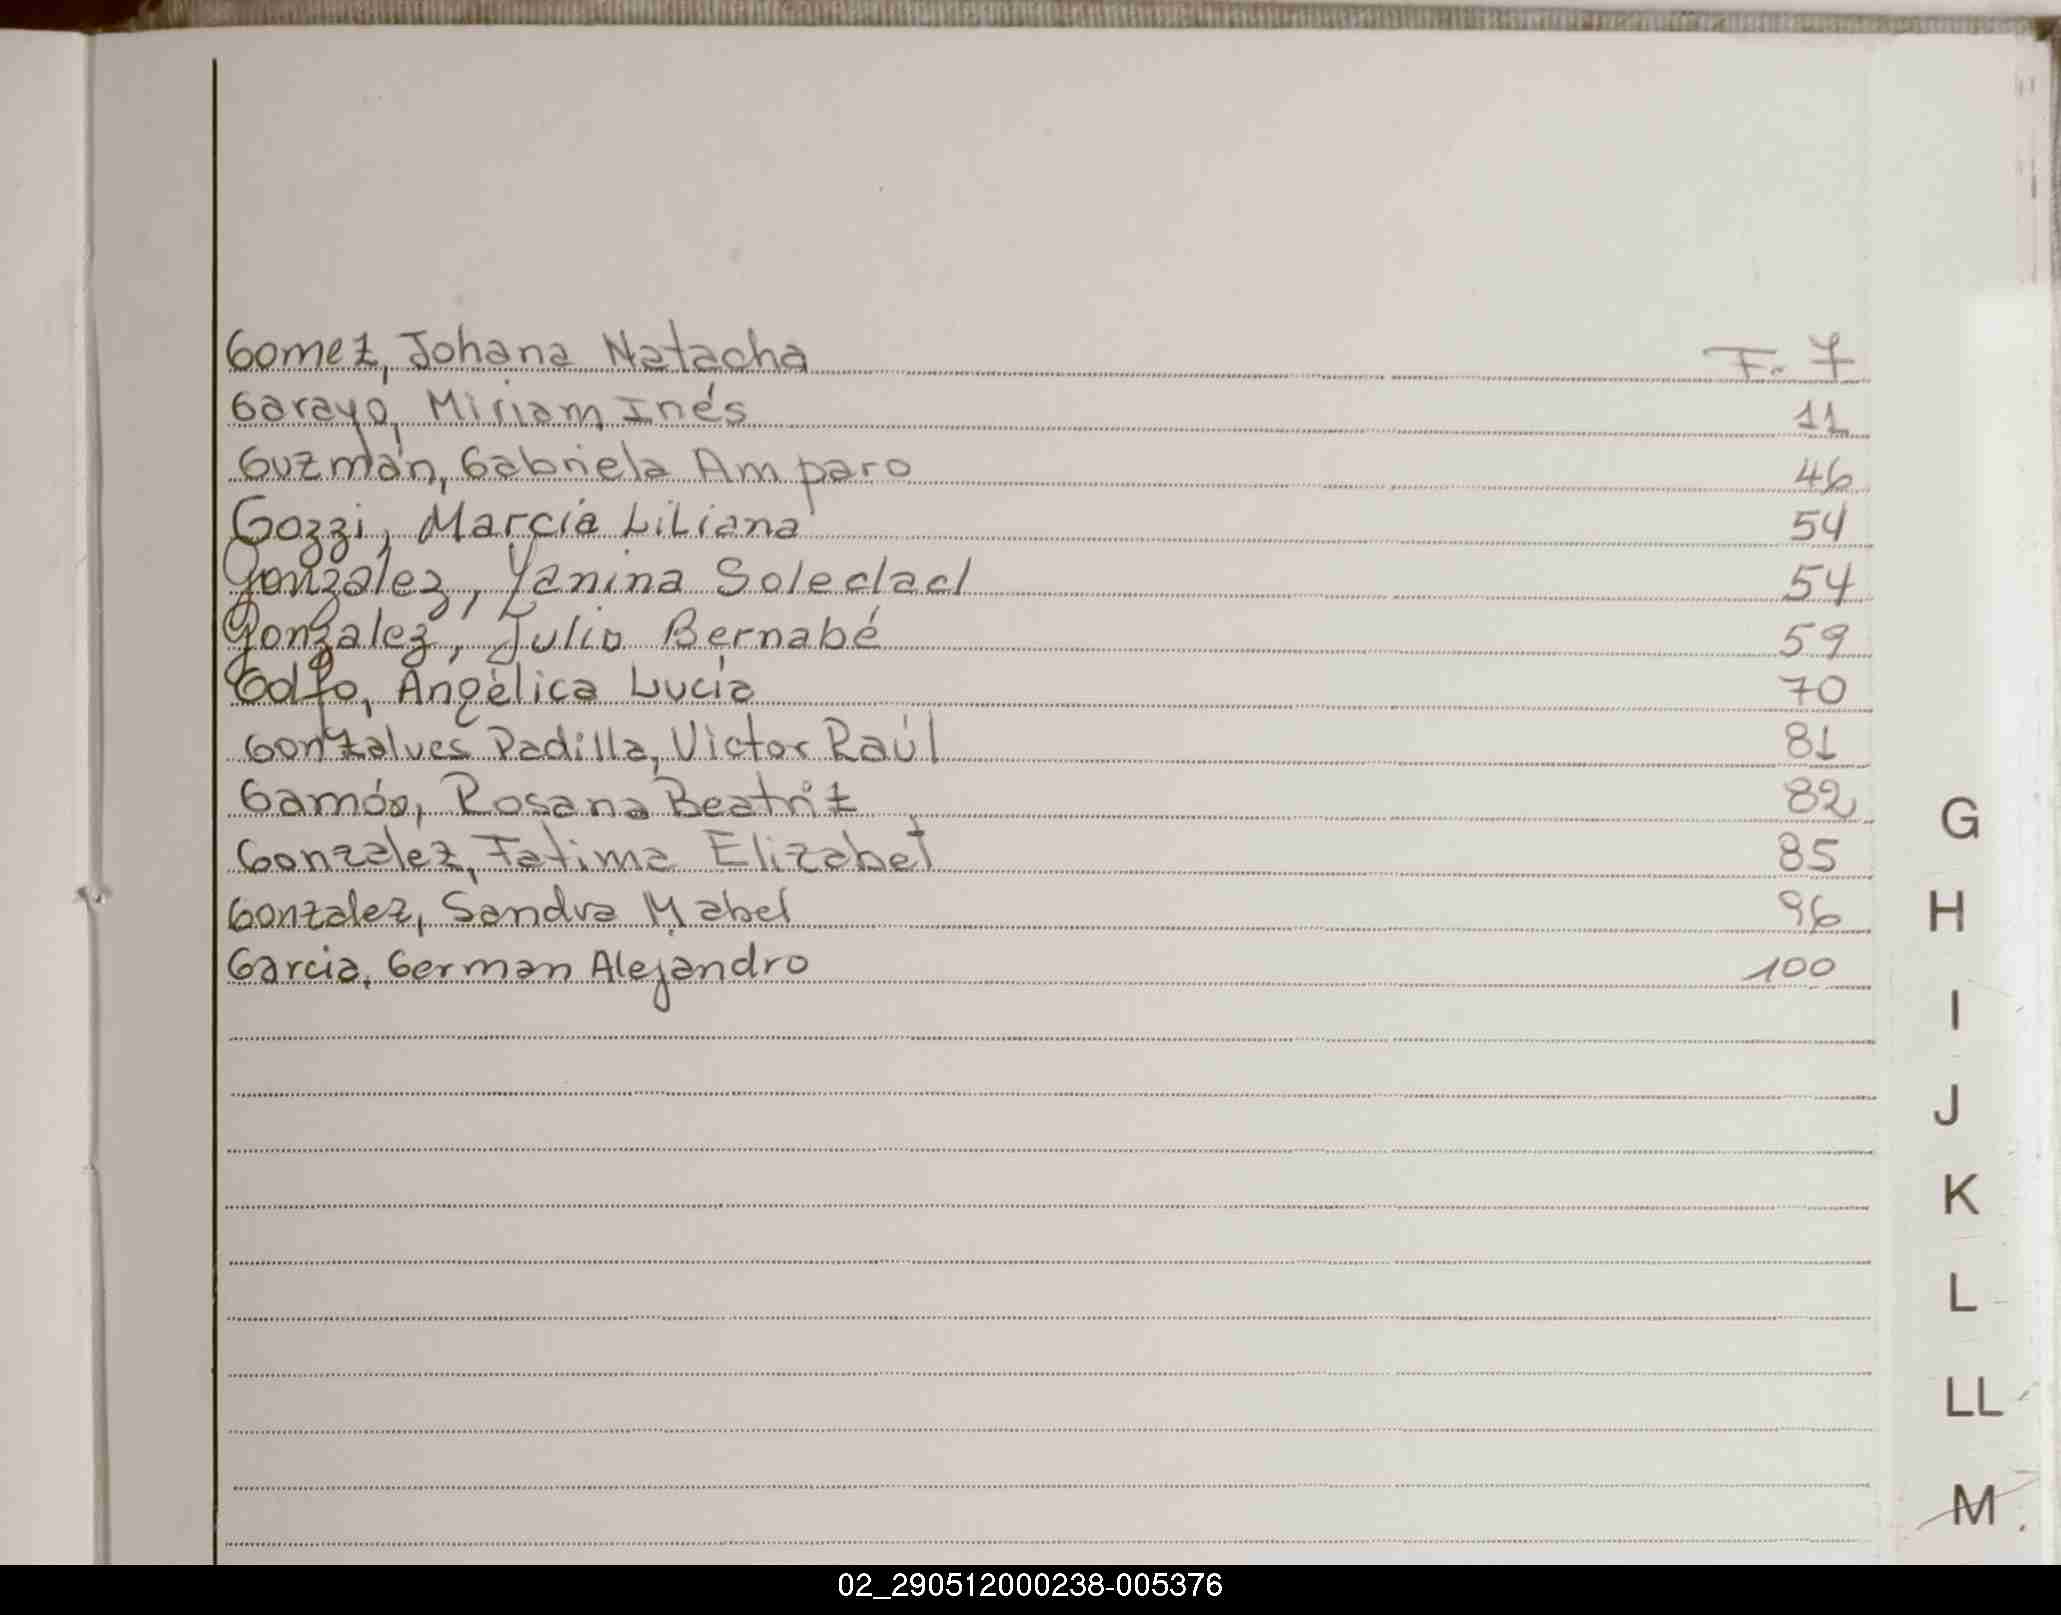 Gomez, Johana Natacha F. 7
Garayo, Miriam Inés 11
Guzmán, Gabriela Amparo 46
Gozzi, Marcia Liliana 54
Gonzalez, Yanina Soledad 54
Gonzalez, Julio Bernabé 59
Golfo, Angélica Lucía 70
Gonzalves Padilla, Victor Raúl 81
Gamón, Rosana Beatriz 82
Gonzalez, Fatima Elizabet 85
Gonzalez, Sandra Mabel 96
Garcia, German Alejandro 100
G
H
I
J
K
L
LL
M
02_290512000238-005376